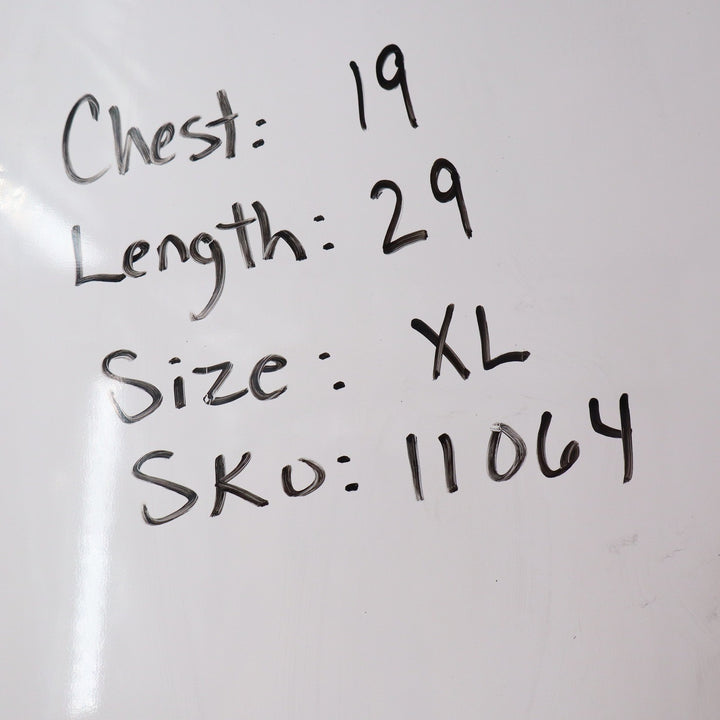 Chest: 19
Length: 29
Size: XL
SKU: 11064